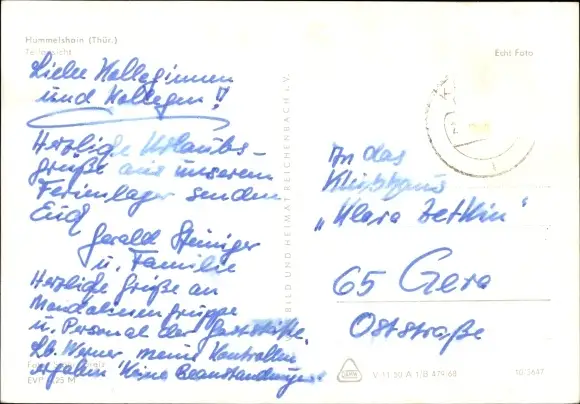 Hummelshain (Thür.)
Teilansicht
Echt Foto
Liebe Kolleginnen
und Kollegen!
Herzliche Urlaubs-
grüße aus unserem
Ferienlager senden
Euch
Gerald Steiniger
u. Familie
Herzliche Grüße an
Mandolinengruppe
u. Personal der Gaststätte.
Lb. Werner, meine Kontrollen
ergaben keine Beanstandungen!
EVP 0,25 M
BILD UND HEIMAT REICHENBACH i. V.
An das
Klubhaus
„Klara Zetkin“
65 Gera
Oststraße
V 11 50 A 1/B 479/68